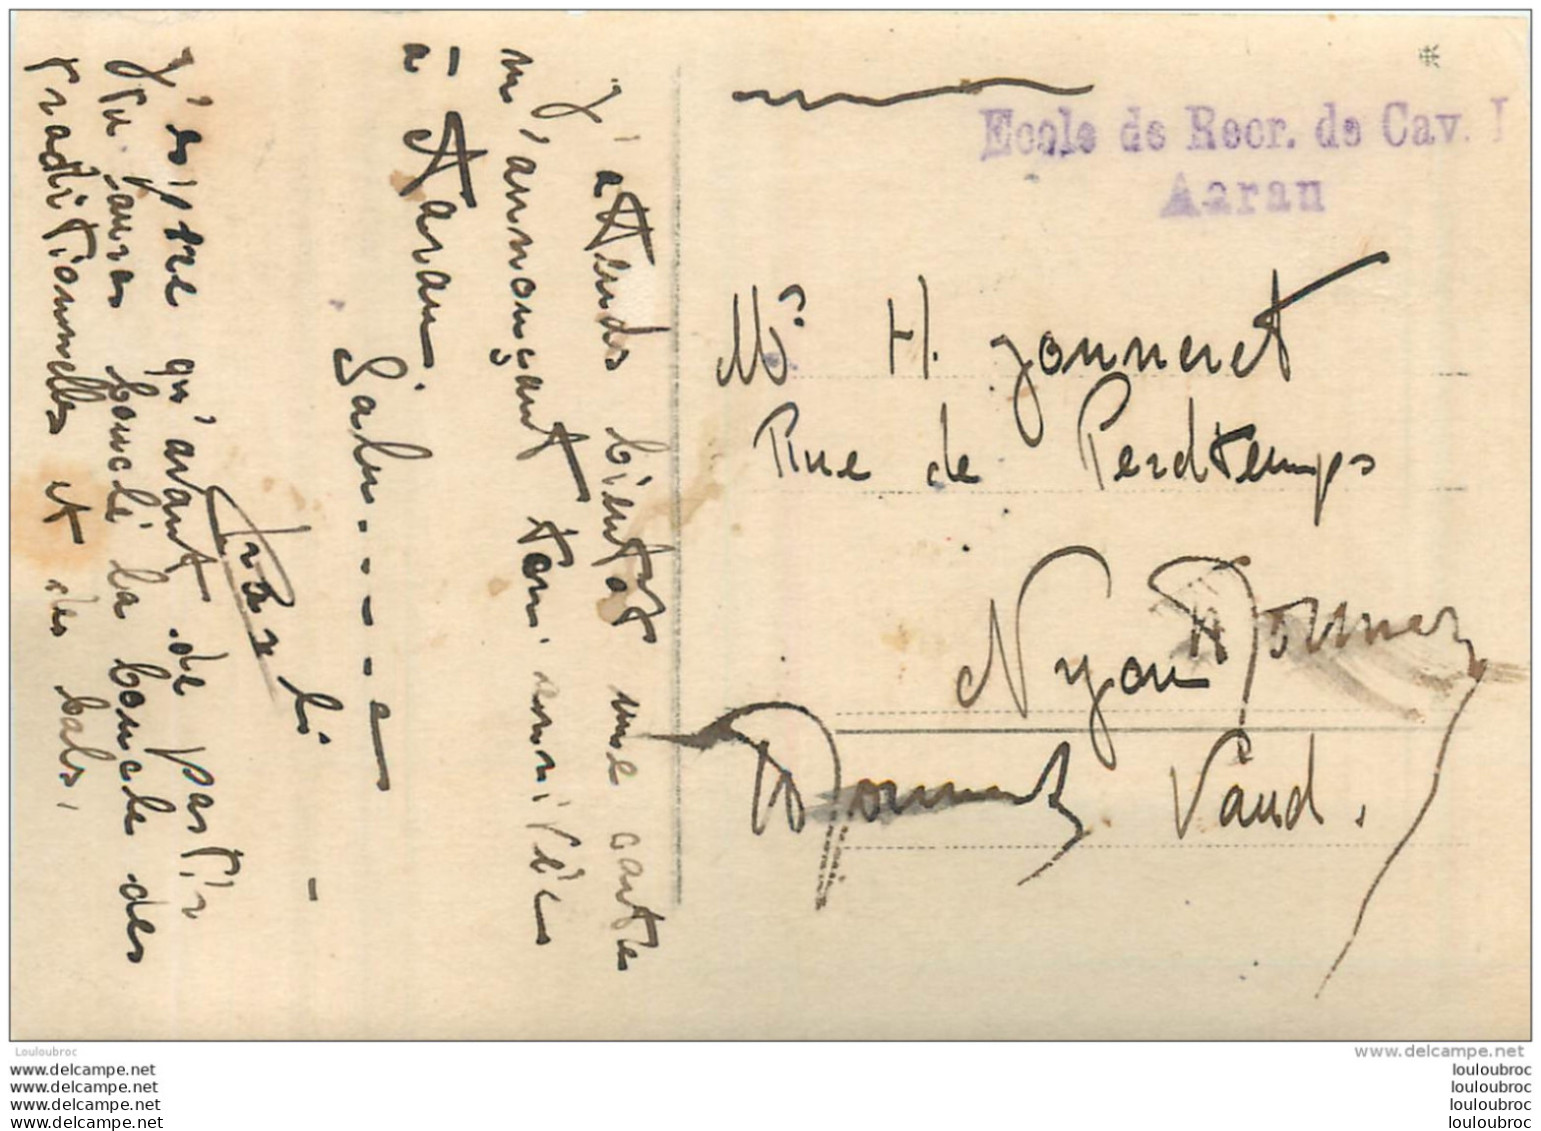 J'attends bientôt une carte
m'annonçant ton arrivée
à Aarau.
Salu------e
J'espère qu'avant de partir
tu auras bouclé la boucle des
traditionnelles et des bals.
Ecole de Recr. de Cav. I
Aarau
Mr. H. Jonneret
Rue de Perdtemps
Nyon
Vaud.
Louloubroc
www.delcampe.net
www.delcampe.net
www.delcampe.net
www.delcampe.net
www.delcampe.net
louloubroc
louloubroc
louloubroc
louloubroc